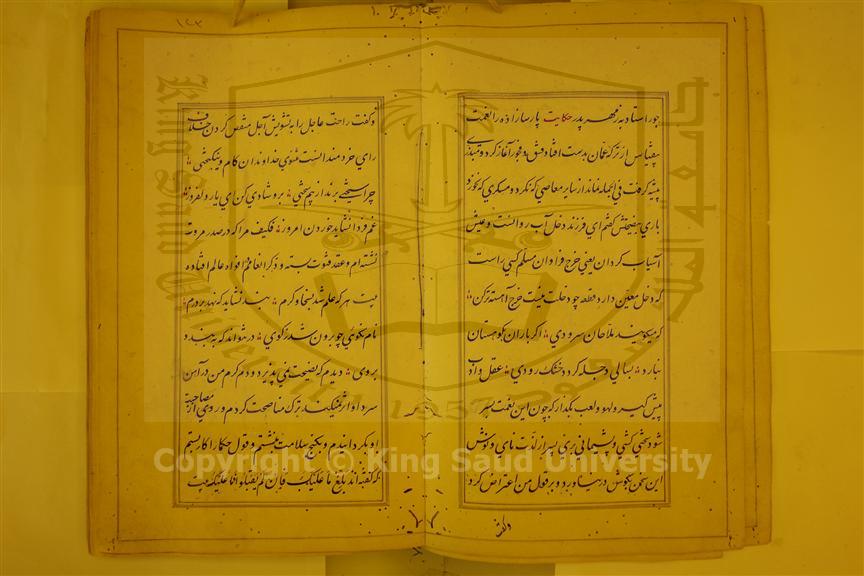 جور استاد به ز مهر پدر حکایت پارسازاده را نعمت
بیقیاس از ترکه عمان بدست افتاد فسق و فجور آغاز کرد و مبذری
پیشه گرفت فی الجمله نماند از سایر معاصی که نکرد و مسکری که نخورد
باری بنصیحتش گفتم ای فرزند دخل آب روانست و عیش
آسیاب گردان یعنی خرج فراوان مسلم کسی راست
که دخل معین دارد قطعه چو دخلت نیست خرج آهسته ترکن
که میگویند ملاحان سرودی اگر باران بکوهستان
نبارد بسالی دجله گردد خشک رودی عقل و ادب
پیش گیر و لهو و لعب بگذار که چون این نعمت سپری
شود سختی کشی و پشیمانی بری پسر از لذت نای و نوش
این سخن بگوش در نیاورد و بر قول من اعتراض کرد
و گفت
١٢٣
و گفت راحت عاجل را به تشویش آجل منغص کردن خلاف
رای خردمندانست مثنوی خداوندان کام و نیکبختی
چرا سختی برند از بیم سختی برو شادی کن ای یار دلفروز
غم فردا نشاید خوردن امروز فکیف مرا که در صدر مروت
نشسته ام و عقد فتوت بسته و ذکر انعامم در افواه عالم افتاده
بیت هر که علم شد بسخا و کرم بند نشاید که نهد بر درم
نام نکوئی چو برون شد ز کوی در نتواند که به بندد
بروی دیدم که نصیحت نمی پذیرد و دم گرم من در آهن
سرد او اثر نمیکند ترک مناصحت کردم و روی از مصاحبت
او بگردانیدم و بکنج سلامت بنشستم و قول حکما را کار بستم
که گفته اند بلغ ما علیک فان لم یقبلوا فما علیک بیت
Copyright © King Saud University
King Saud University
جامعة الملك سعود
1957